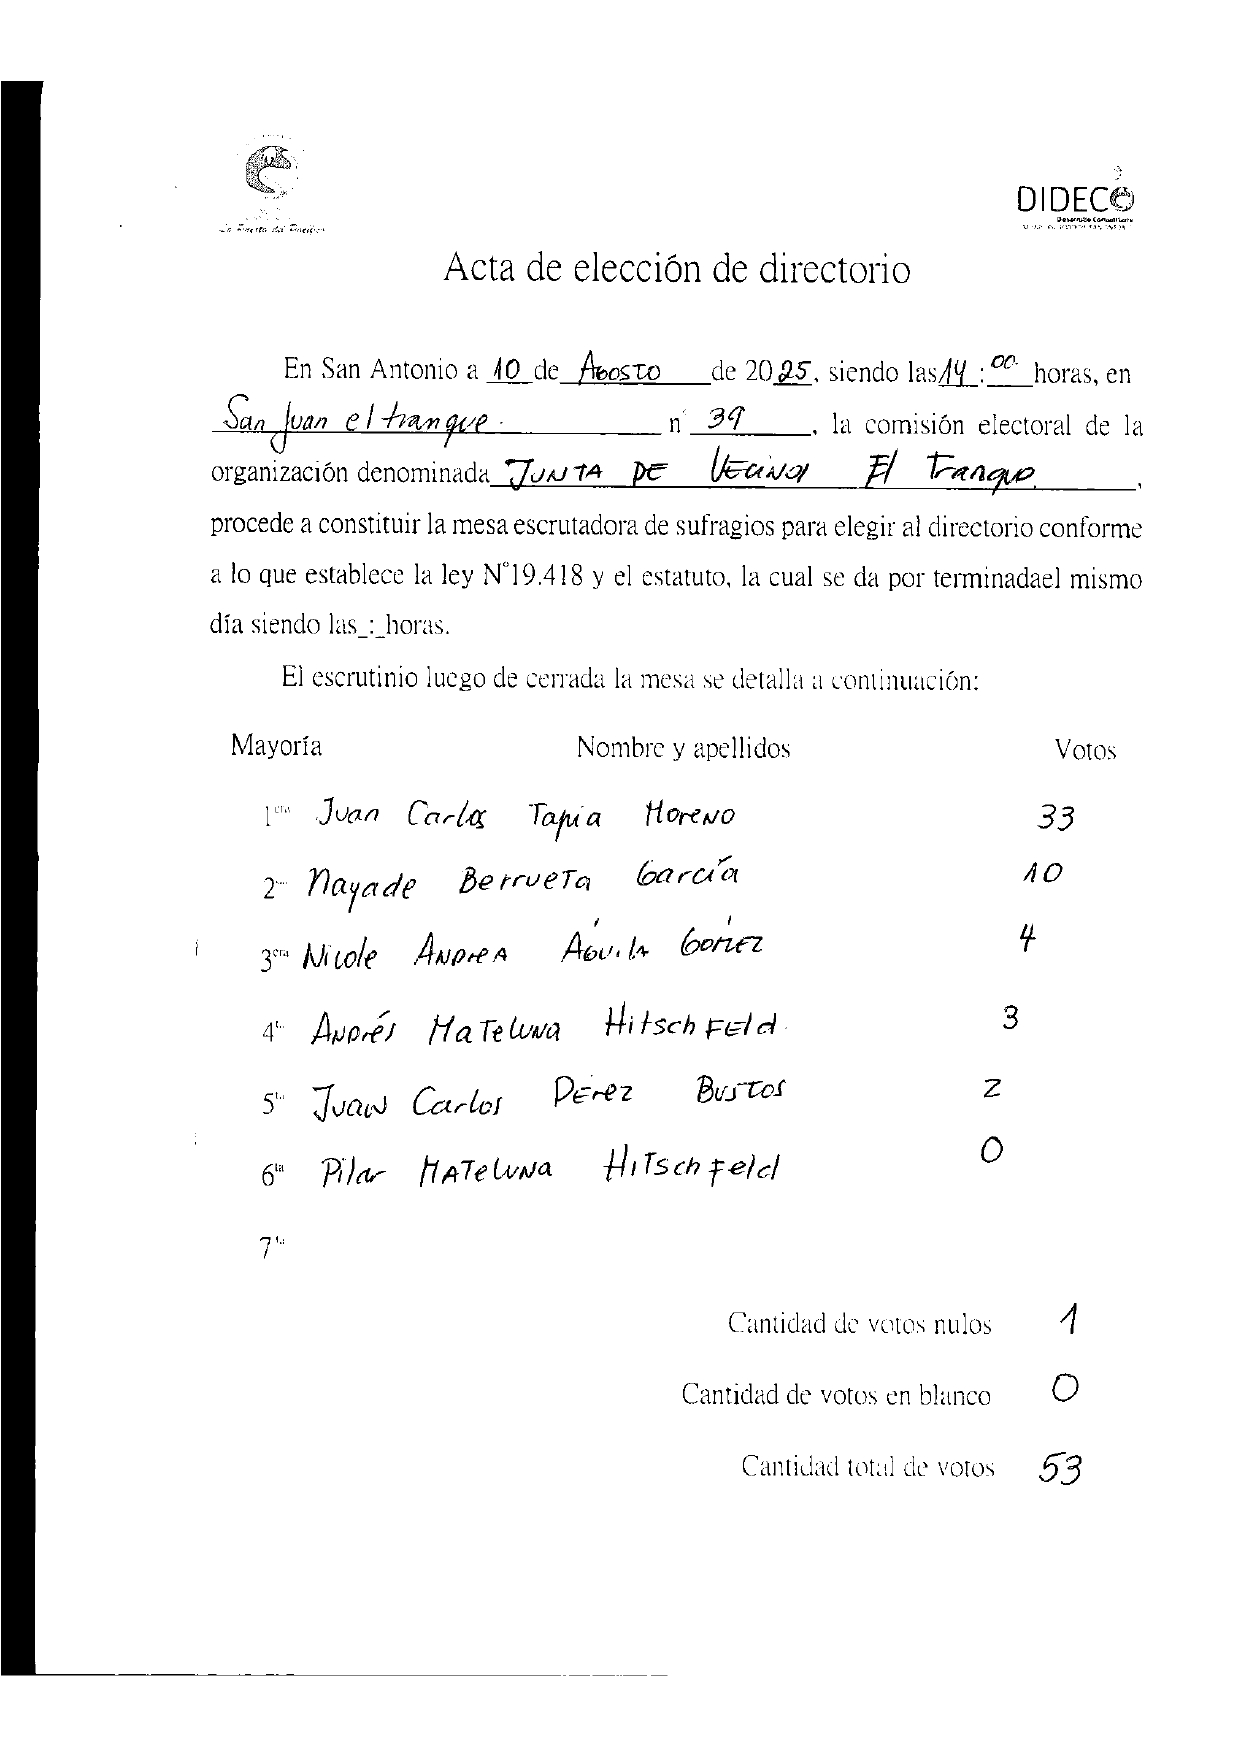 La Puerta del Pacífico
DIDECO
Desarrollo Comunitario
Acta de elección de directorio
En San Antonio a 10 de Agosto de 2025, siendo las 14:00 horas, en
San Juan el tranque n° 39, la comisión electoral de la
organización denominada JUNTA DE Vecinos El Tranque,
procede a constituir la mesa escrutadora de sufragios para elegir al directorio conforme
a lo que establece la ley N°19.418 y el estatuto, la cual se da por terminadael mismo
día siendo las_:_horas.
El escrutinio luego de cerrada la mesa se detalla a continuación:
Mayoría Nombre y apellidos Votos
1era Juan Carlos Tapia Moreno 33
2da Nayade Berrueta García 10
3era Nicole Andrea Águila Gómez 4
4ta Andrés Mateluna Hitschfeld 3
5ta Juan Carlos Pérez Bustos 2
6ta Pilar Mateluna Hitschfeld 0
7ta
Cantidad de votos nulos 1
Cantidad de votos en blanco 0
Cantidad total de votos 53